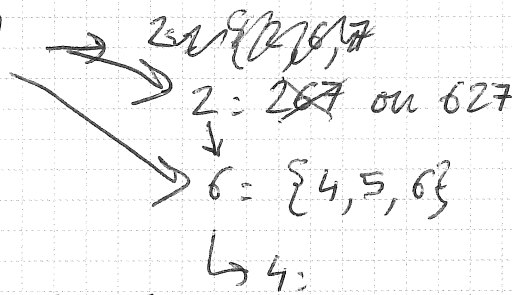 2: 267 ou 627
6: {4, 5, 6}
4: